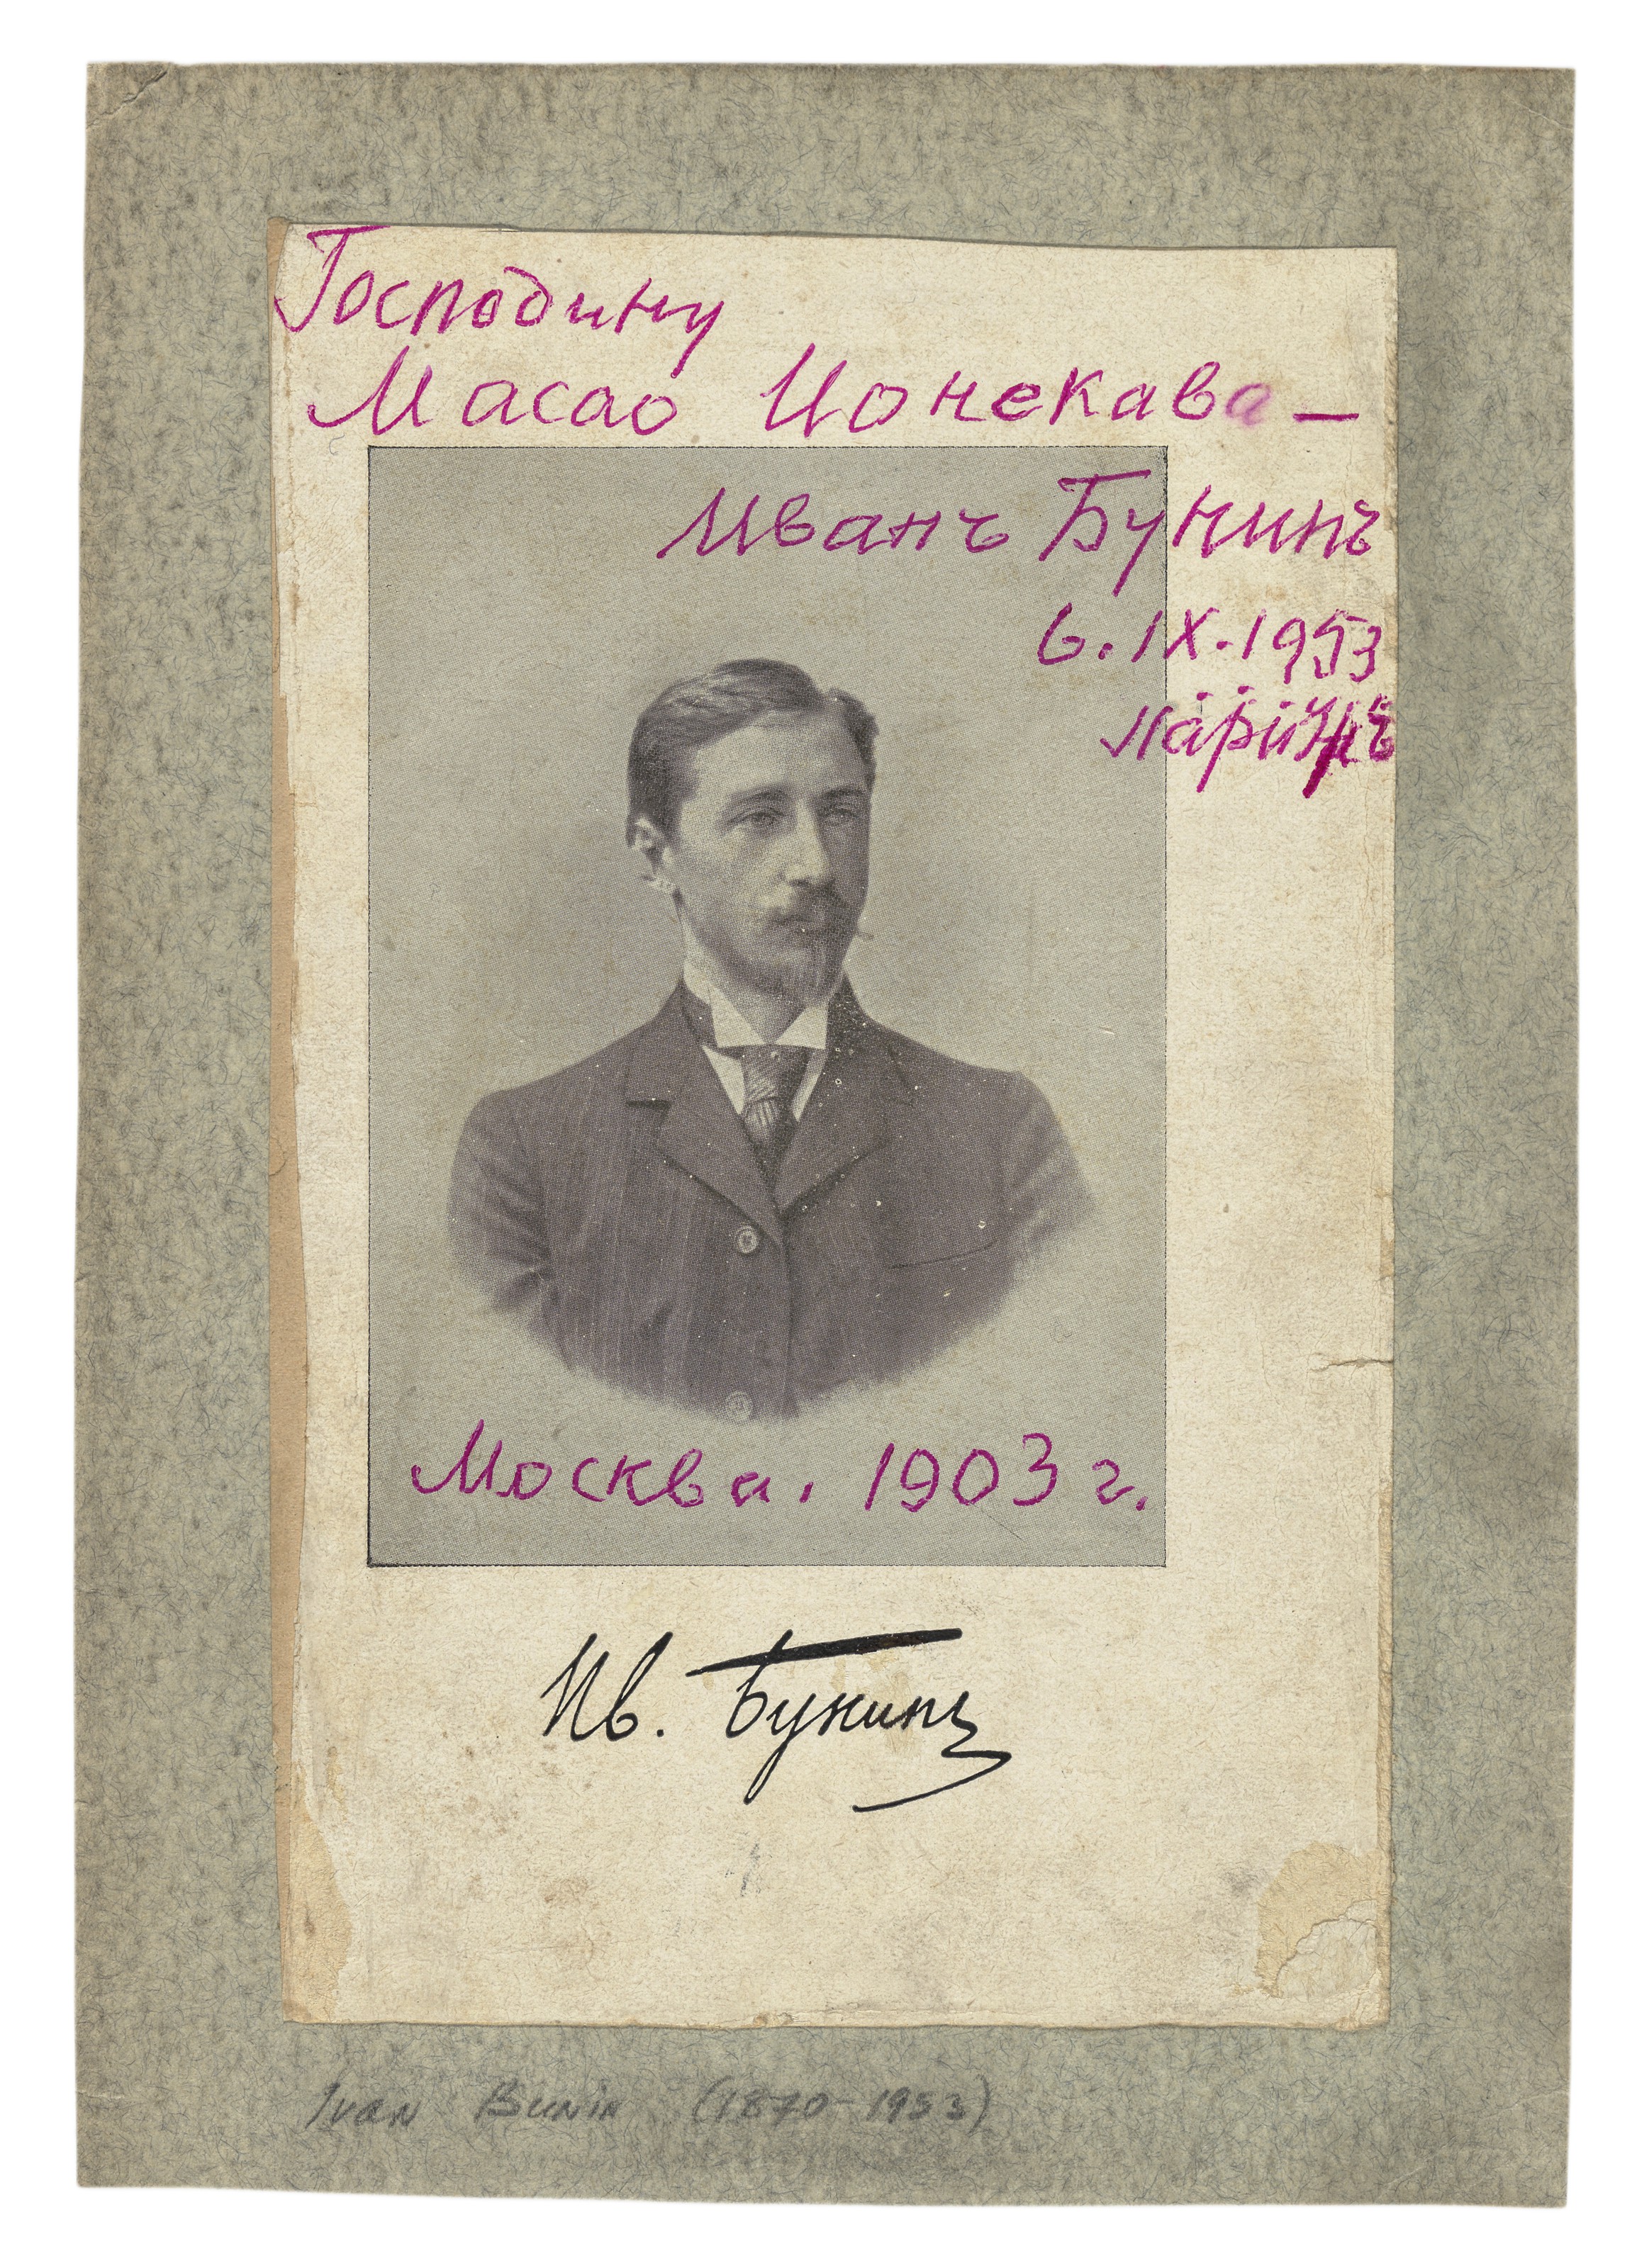 Господину
Масао Ионекава —
Иванъ Бунинъ
6. IX. 1953
Парижъ
Москва. 1903 г.
Ив. Бунинъ
Ivan Bunin (1870-1953)